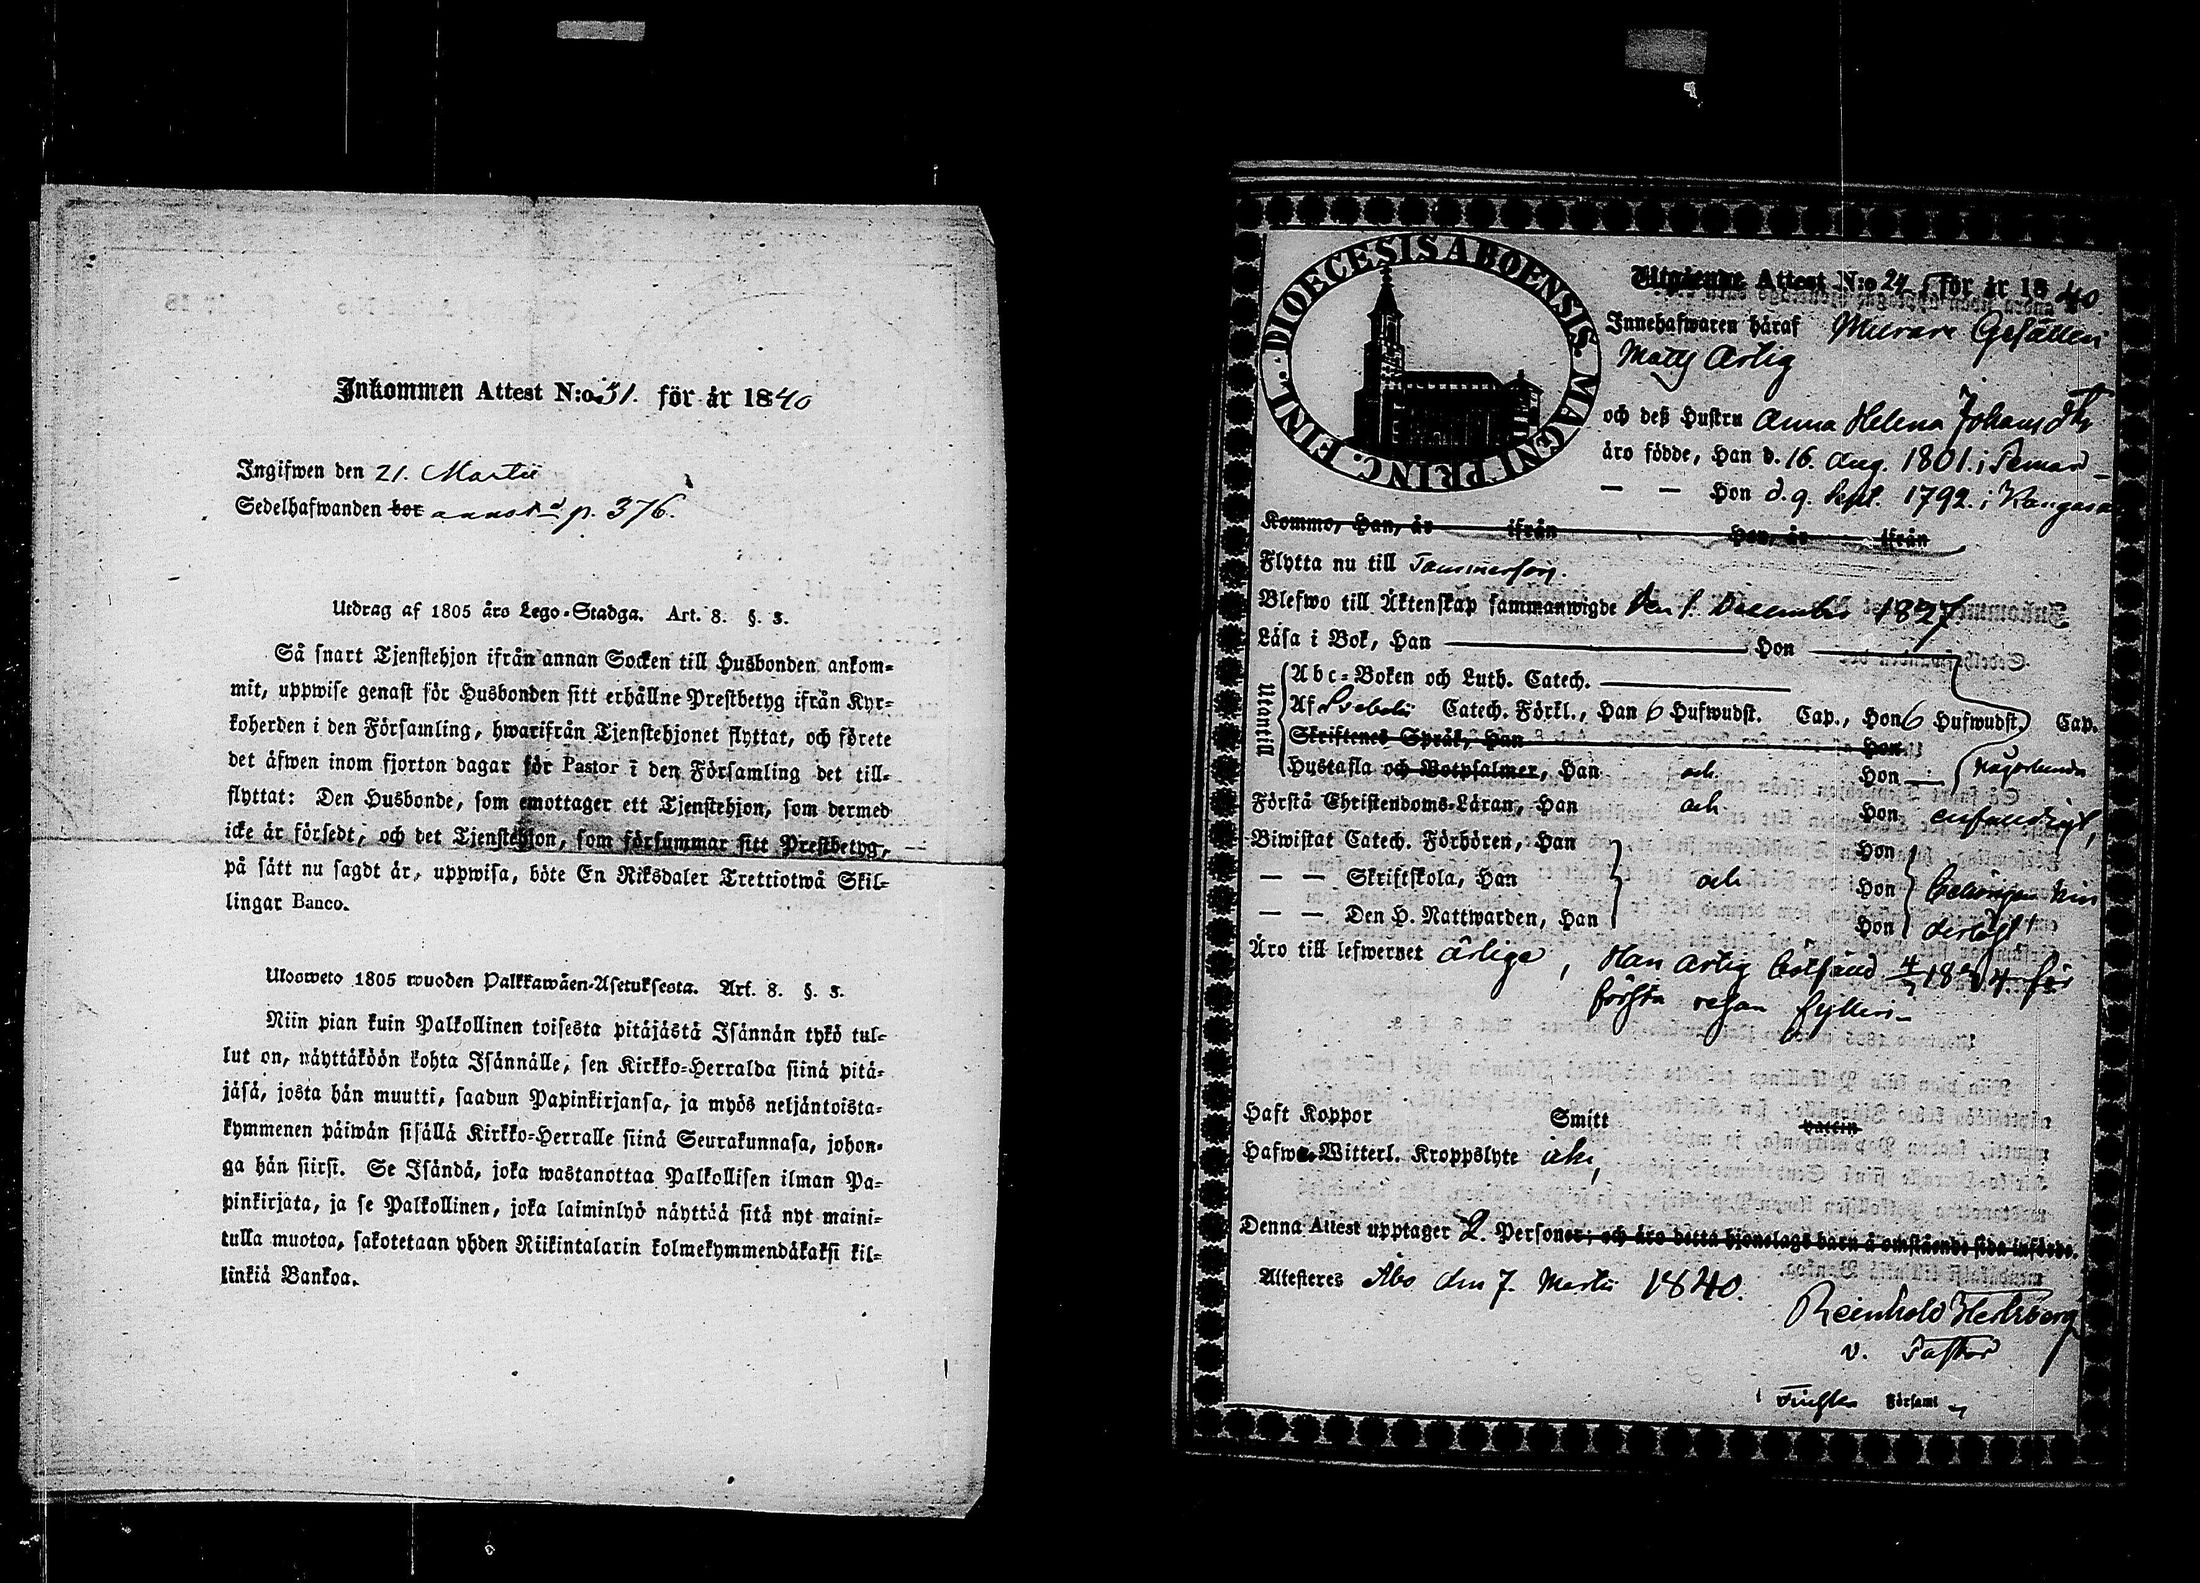 Inkommen Attest N:o 51. för år 1840
Ingifwen den 21. Martii
Sedelhafwanden bor annot.d p. 376.
Utdrag af 1805 års Lego-Stadga. Art. 8. §. 3.
Så snart Tjenstehjon ifrån annan Socken till Husbonden ankom-
mit, uppwise genast för Husbonden sitt erhållne Prestbetyg ifrån Kyr-
koherden i den Församling, hwarifrån Tjenstehjonet flyttat, och förete
det äfwen inom fjorton dagar för Pastor i den Församling det till-
flyttat: Den Husbonde, som emottager ett Tjenstehjon, som dermed
icke är försedt, och det Tjenstehjon, som försummar sitt Prestbetyg,
på sätt nu sagdt är, uppwisa, böte En Riksdaler Trettiotwå Skil-
lingar Banco.
Ulosweto 1805 wuoden Palkkawäen-Asetuksesta. Art. 8. §. 3.
Niin pian kuin Palkollinen toisesta pitäjästä Isännän tykö tul-
lut on, näyttäköön kohta Isännälle, sen Kirkko-Herralda siinä pitä-
jäsä, josta hän muutti, saadun Papinkirjansa, ja myös neljäntoista-
kymmenen päiwän sisällä Kirkko-Herralle siinä Seurakunnasa, johon-
ga hän siirsi. Se Isändä, joka wastanottaa Palkollisen ilman Pa-
pinkirjata, ja se Palkollinen, joka laiminlyö näyttää sitä nyt maini-
tulla muotoa, sakotetaan yhden Riikintalarin kolmekymmendäkaksi kil-
linkiä Bankoa.
DIOECESIS ABOENSIS. MAGNI PRINC. FINL.
Utgifwne Attest N:o 24 för år 1840
Innehafwaren häraf Murare Gesällen
Matts Artig
och deß Hustru Anna Helena Johansdtr
äro födde, Han d. 16. Aug. 1801. i Pemar
— — Hon d. 9. Sept. 1792. i Kangasa
Kommo, Han, år ifrån Hon, år ifrån
Flytta nu till Tammerfors.
Blefwo till Äktenskap sammanwigde den 1. December 1827
Läsa i Bok, Han Hon
Utantill
Abc-Boken och Luth. Catech.
Af Svebelii Catech. Förkl., Han 6 Hufwudst. Cap., Hon 6 Hufwudst. Cap.
Skriftenes Språk, Han Hon
Hustafla och Botpsalmer, Han och Hon någorlunda
Förstå Christendoms-Läran, Han och Hon enfaldigt,
Biwistat Catech. Förhören, Han Hon
— — Skriftskola, Han och Hon
— — Den H. Nattwarden, Han Hon
Äro till lefwernet ärlige, Han Artig bötfäld
första resan fylleri
Haft Koppor Smitt
Hafwa Witterl. Kroppslyte icke,
Denna Attest upptager 2. Personer; och äro detta hjonelags barn å omstående sida införde.
Attesteres Åbo den 7. Martii 1840.
Reinhold Hertzberg
v. Pastor
i Finska Församl